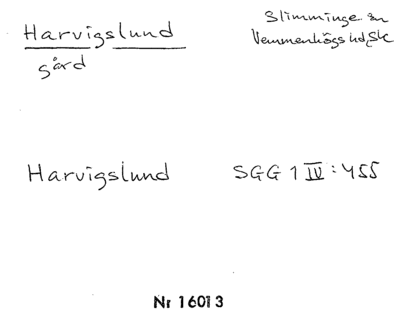 Harvigslund
gård
Slimminge sn
Vemmenhögs hd, Sk
Harvigslund
SGG 1 IV : 455
Nr 16013